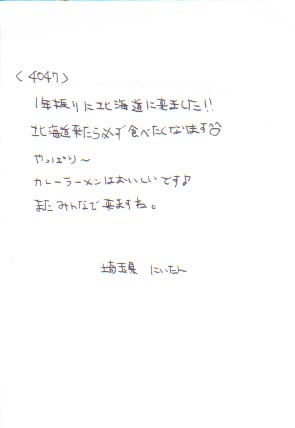 〈4047〉
1年振りに北海道に来ました!!
北海道来たら必ず食べたくなります^^
やっぱり〜
カレーラーメンはおいしいです♪
またみんなで来ますね。
埼玉県 にいたん